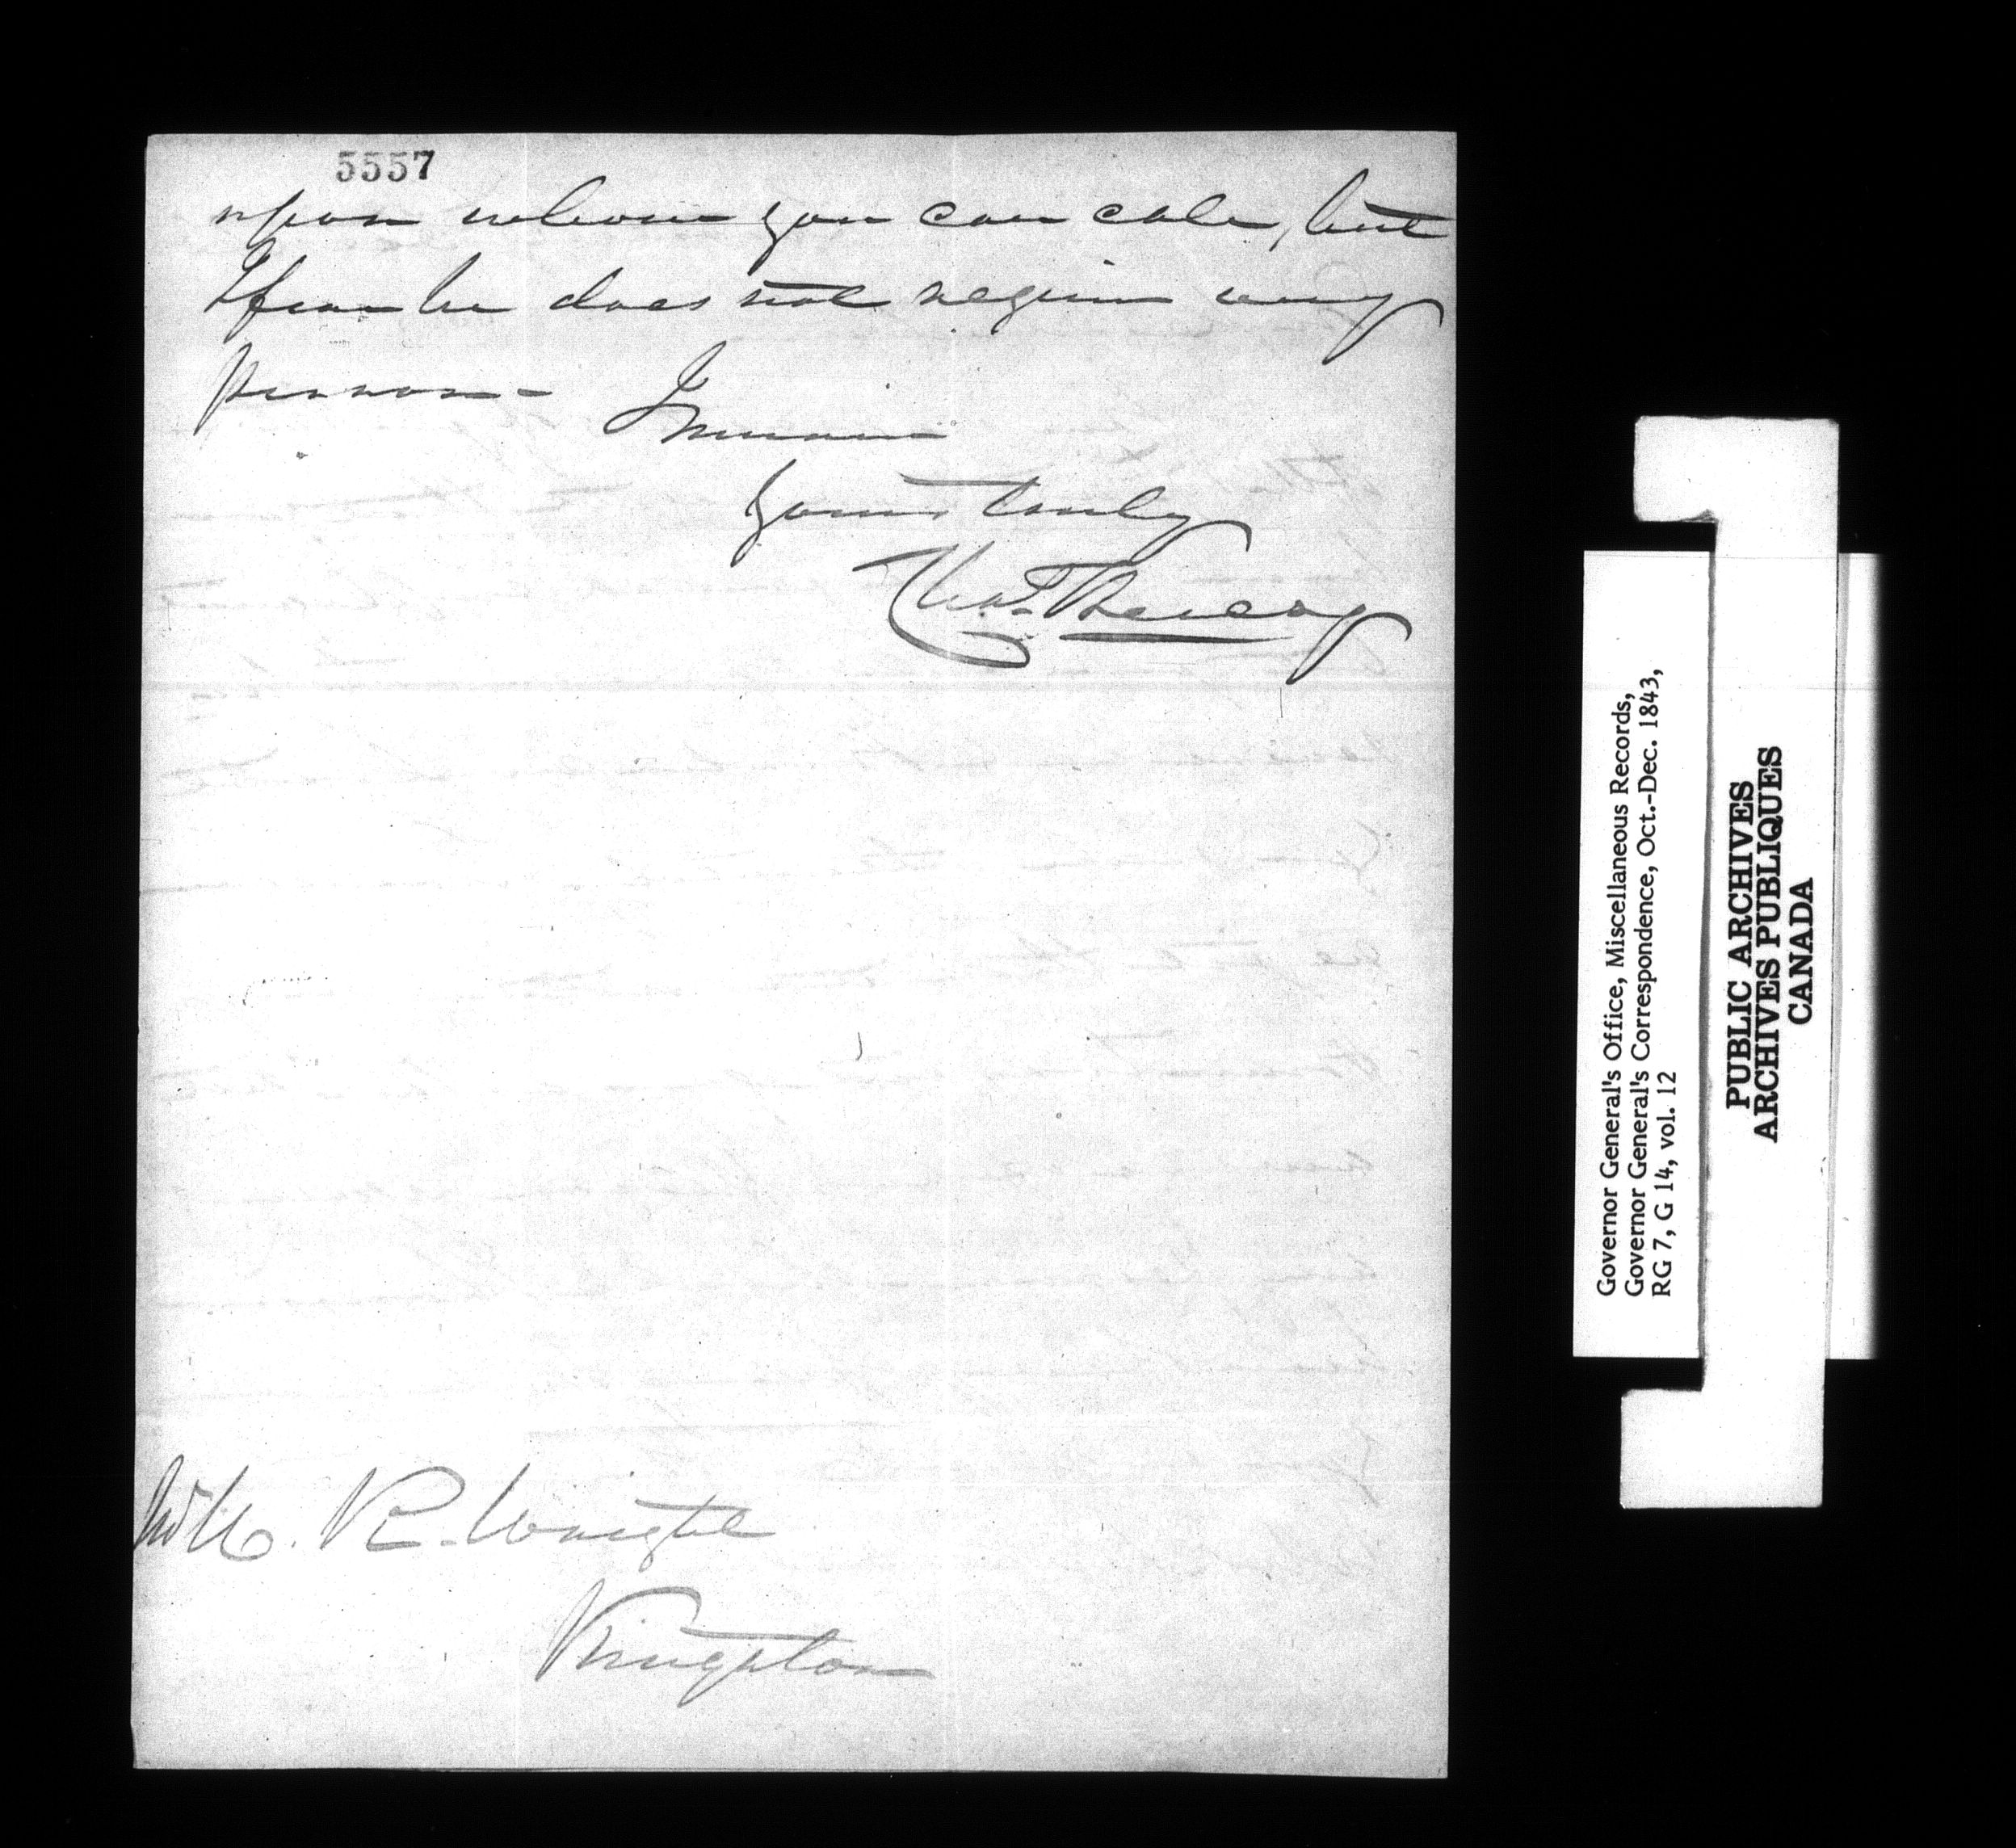 5557
upon whom you can call, but
I fear he does not require any
person - I remain
Yours truly
Thos.
Mr H. R. Wright
Kingston
Governor General's Office, Miscellaneous Records,
Governor General's Correspondence, Oct.-Dec. 1843,
RG 7, G 14, vol. 12
PUBLIC ARCHIVES
ARCHIVES PUBLIQUES
CANADA